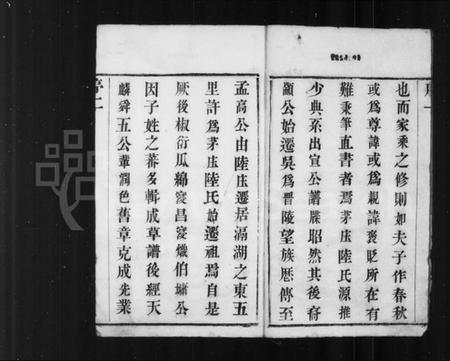 也而家乘之修則如夫子作春秋
或為尊諱或為親諱褒貶所在有
難秉筆直書者焉茅庄陸氏源推
少典系出宣公譜牒昭然其後裔
顯公始遷吳為晉陵望族厯傳至
孟高公由陸庄遷居滆湖之東五
里許為茅庄陸氏始遷祖焉自是
厥後椒衍瓜綿寖昌寖熾伯墉公
因子姓之蕃多輯成草譜後經天
麟舜五公輩潤色舊章克成先業
序二